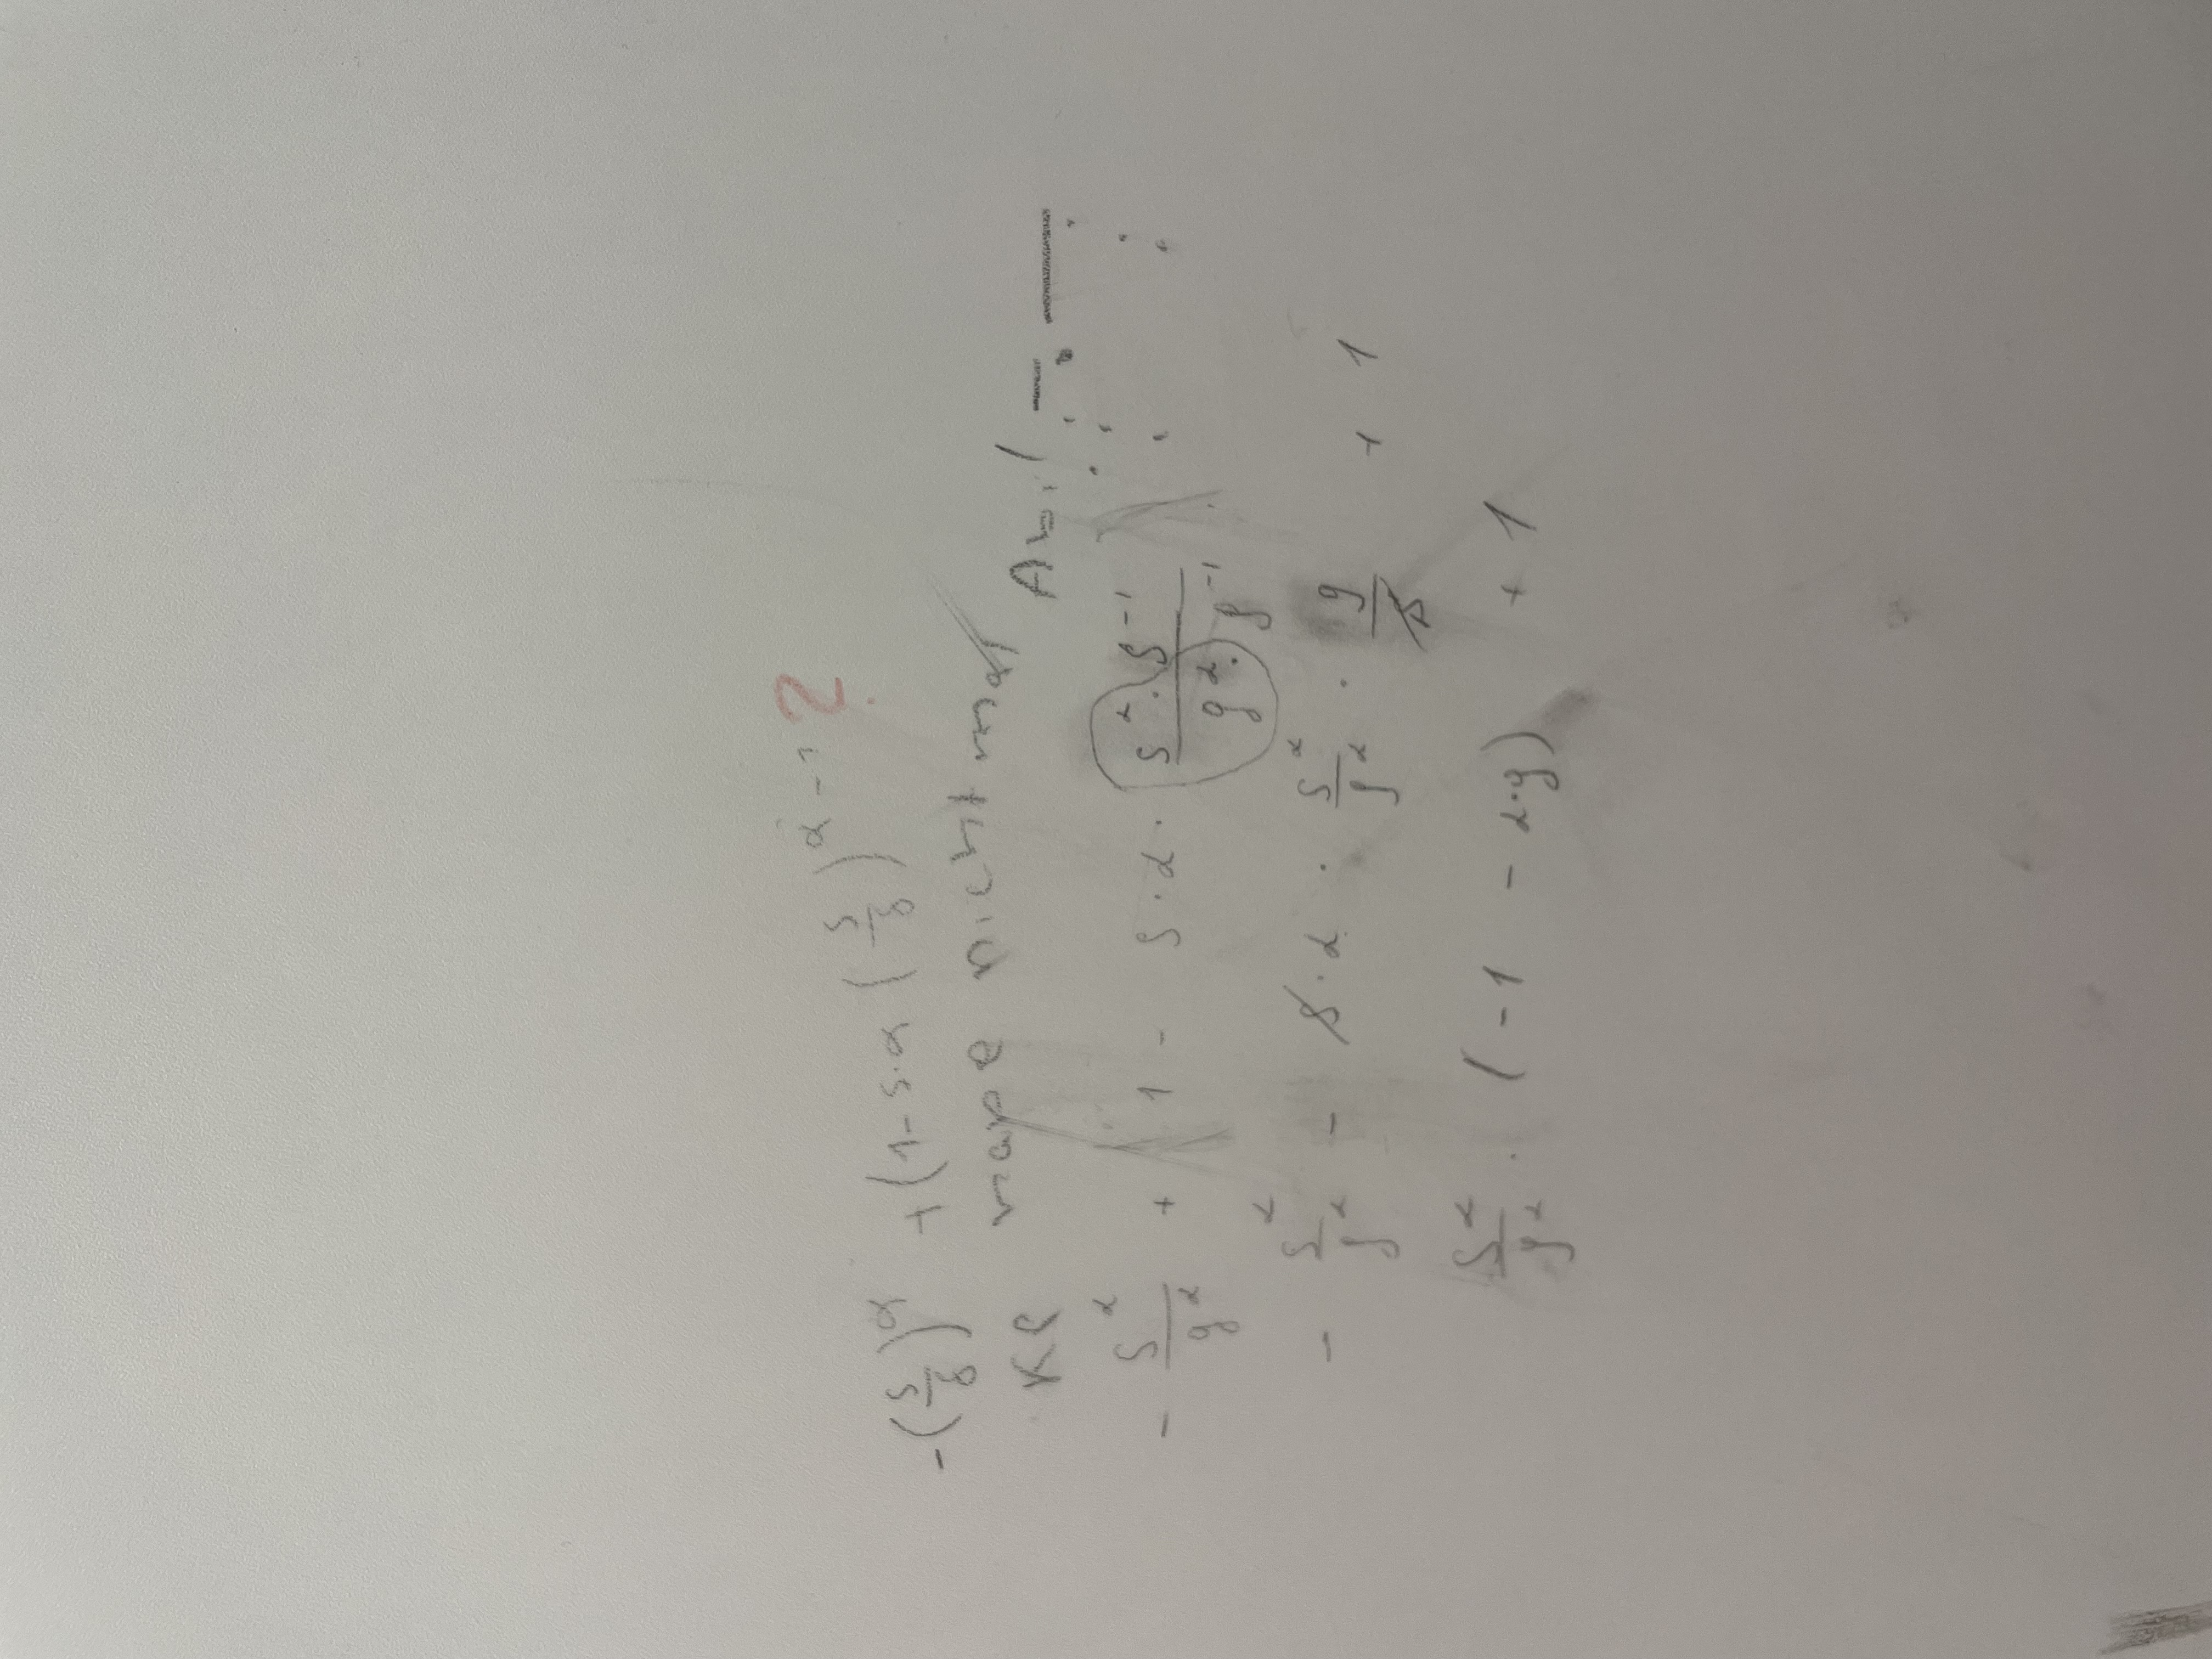 -(s/δ)^α +(1-s·α (s/δ)^α-1 ?
KP hape nicht mal Abi!
- s^α/g^α + 1 - s·α· s^α·s^-1/g^α·g^-1
- s^α/g^α - s·α · s^α/g^α · g/s + 1
s^α/g^α · (-1 - α·g) + 1